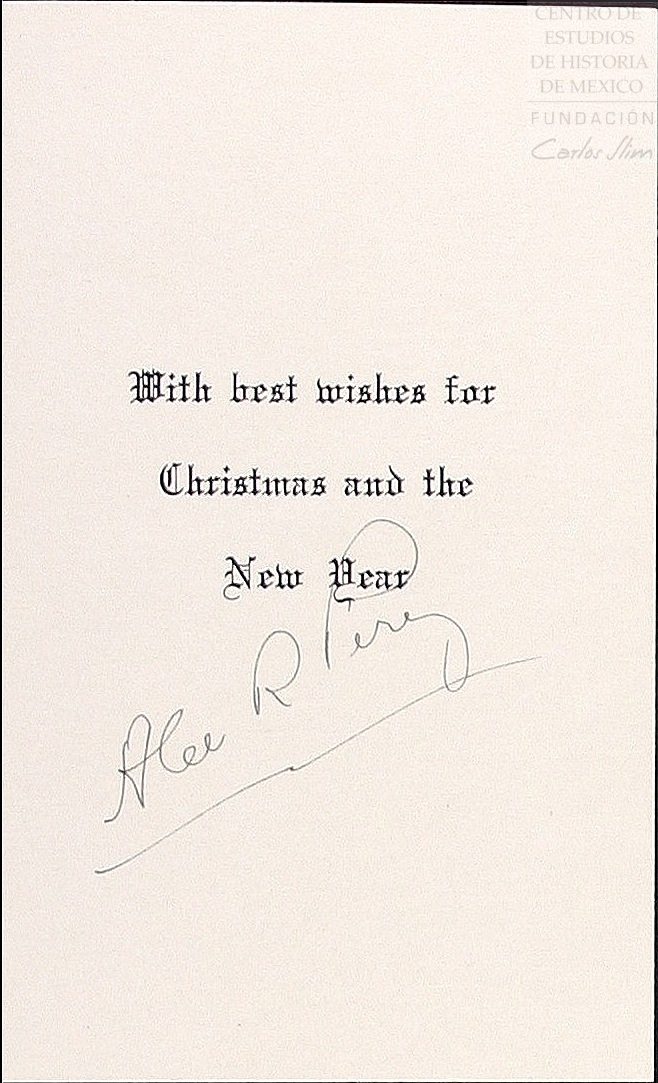 CENTRO DE
ESTUDIOS
DE HISTORIA
DE MEXICO
FUNDACIÓN
Carlos Slim
With best wishes for
Christmas and the
New Year
Alec R Perey